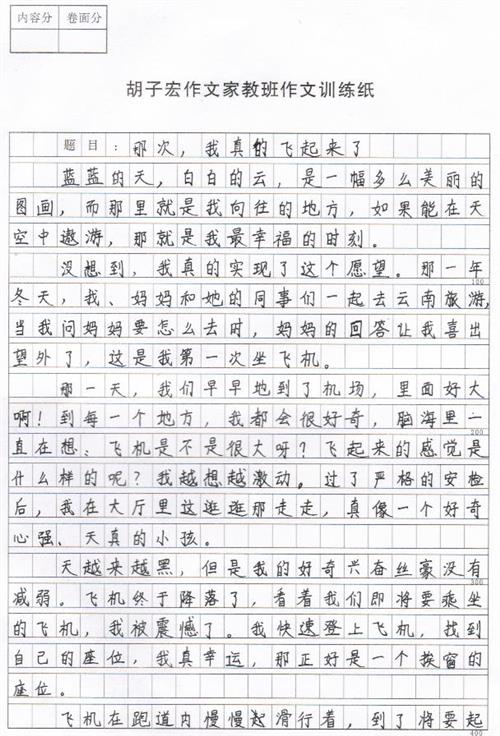 内容分 卷面分
胡子宏作文家教班作文训练纸
题目：那次，我真的飞起来了
蓝蓝的天，白白的云，是一幅多么美丽的
图画，而那里就是我向往的地方，如果能在天
空中遨游，那就是我最幸福的时刻。
没想到，我真的实现了这个愿望。那一年
100
冬天，我、妈妈和她的同事们一起去云南旅游，
当我问妈妈要怎么去时，妈妈的回答让我喜出
望外了，这是我第一次坐飞机。
那一天，我们早早地到了机场，里面好大
啊！到每一个地方，我都会很好奇，脑海里一
200
直在想：飞机是不是很大呀？飞起来的感觉是
什么样的呢？我越想越激动。过了严格的安检
后，我在大厅里这逛逛那走走，真像一个好奇
心强、天真的小孩。
天越来越黑，但是我的好奇兴奋丝豪没有
300
减弱。飞机终于降落了，看着我们即将要乘坐
的飞机，我被震憾了。我快速登上飞机，找到
自己的座位，我真幸运，那正好是一个挨窗的
座位。
飞机在跑道内慢慢起滑行着，到了将要起
400